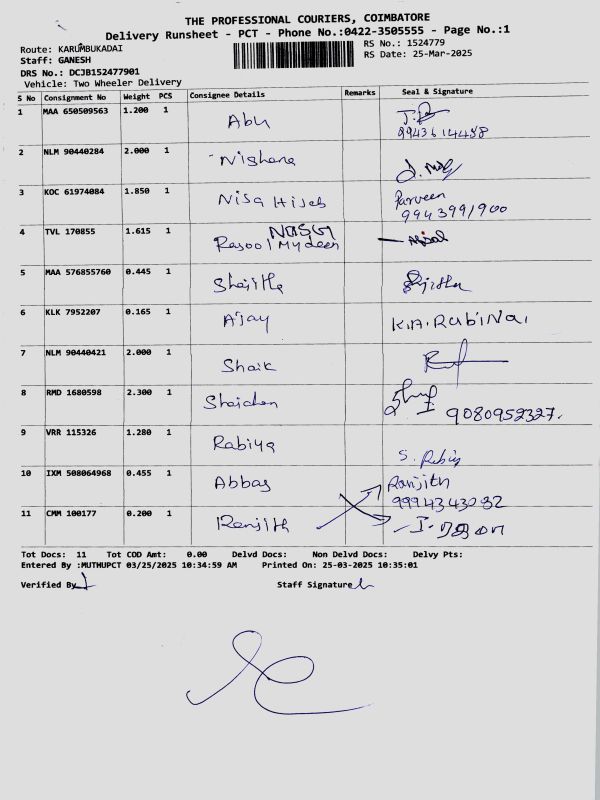 THE PROFESSIONAL COURIERS, COIMBATORE
Delivery Runsheet - PCT - Phone No.:0422-3505555 - Page No.:1
Route: KARUMBUKADAI
RS No.: 1524779
Staff: GANESH
RS Date: 25-Mar-2025
DRS No.: DCJB152477901
Vehicle: Two Wheeler Delivery
S No Consignment No Weight PCS Consignee Details Remarks Seal & Signature
1 MAA 650509563 1.200 1 Abu
9943614488
2 NLM 90440284 2.000 1 Nishana
3 KOC 61974084 1.850 1 Nisa Hijab Parveen
9943991900
4 TVL 170855 1.615 1 Rasool Mydeen
5 MAA 576855760 0.445 1 Shajitha
6 KLK 7952207 0.165 1 Ajay K.A.RUBINA.
7 NLM 90440421 2.000 1 Shaik
8 RMD 1680598 2.300 1 9080952327.
9 VRR 115326 1.280 1 Rabiya
10 IXM 508064968 0.455 1 Abbas Ranjith
9994343032
11 CMM 100177 0.200 1 Ranjith
Tot Docs: 11 Tot COD Amt: 0.00 Delvd Docs: Non Delvd Docs: Delvy Pts:
Entered By :MUTHUPCT 03/25/2025 10:34:59 AM Printed On: 25-03-2025 10:35:01
Verified By
Staff Signature